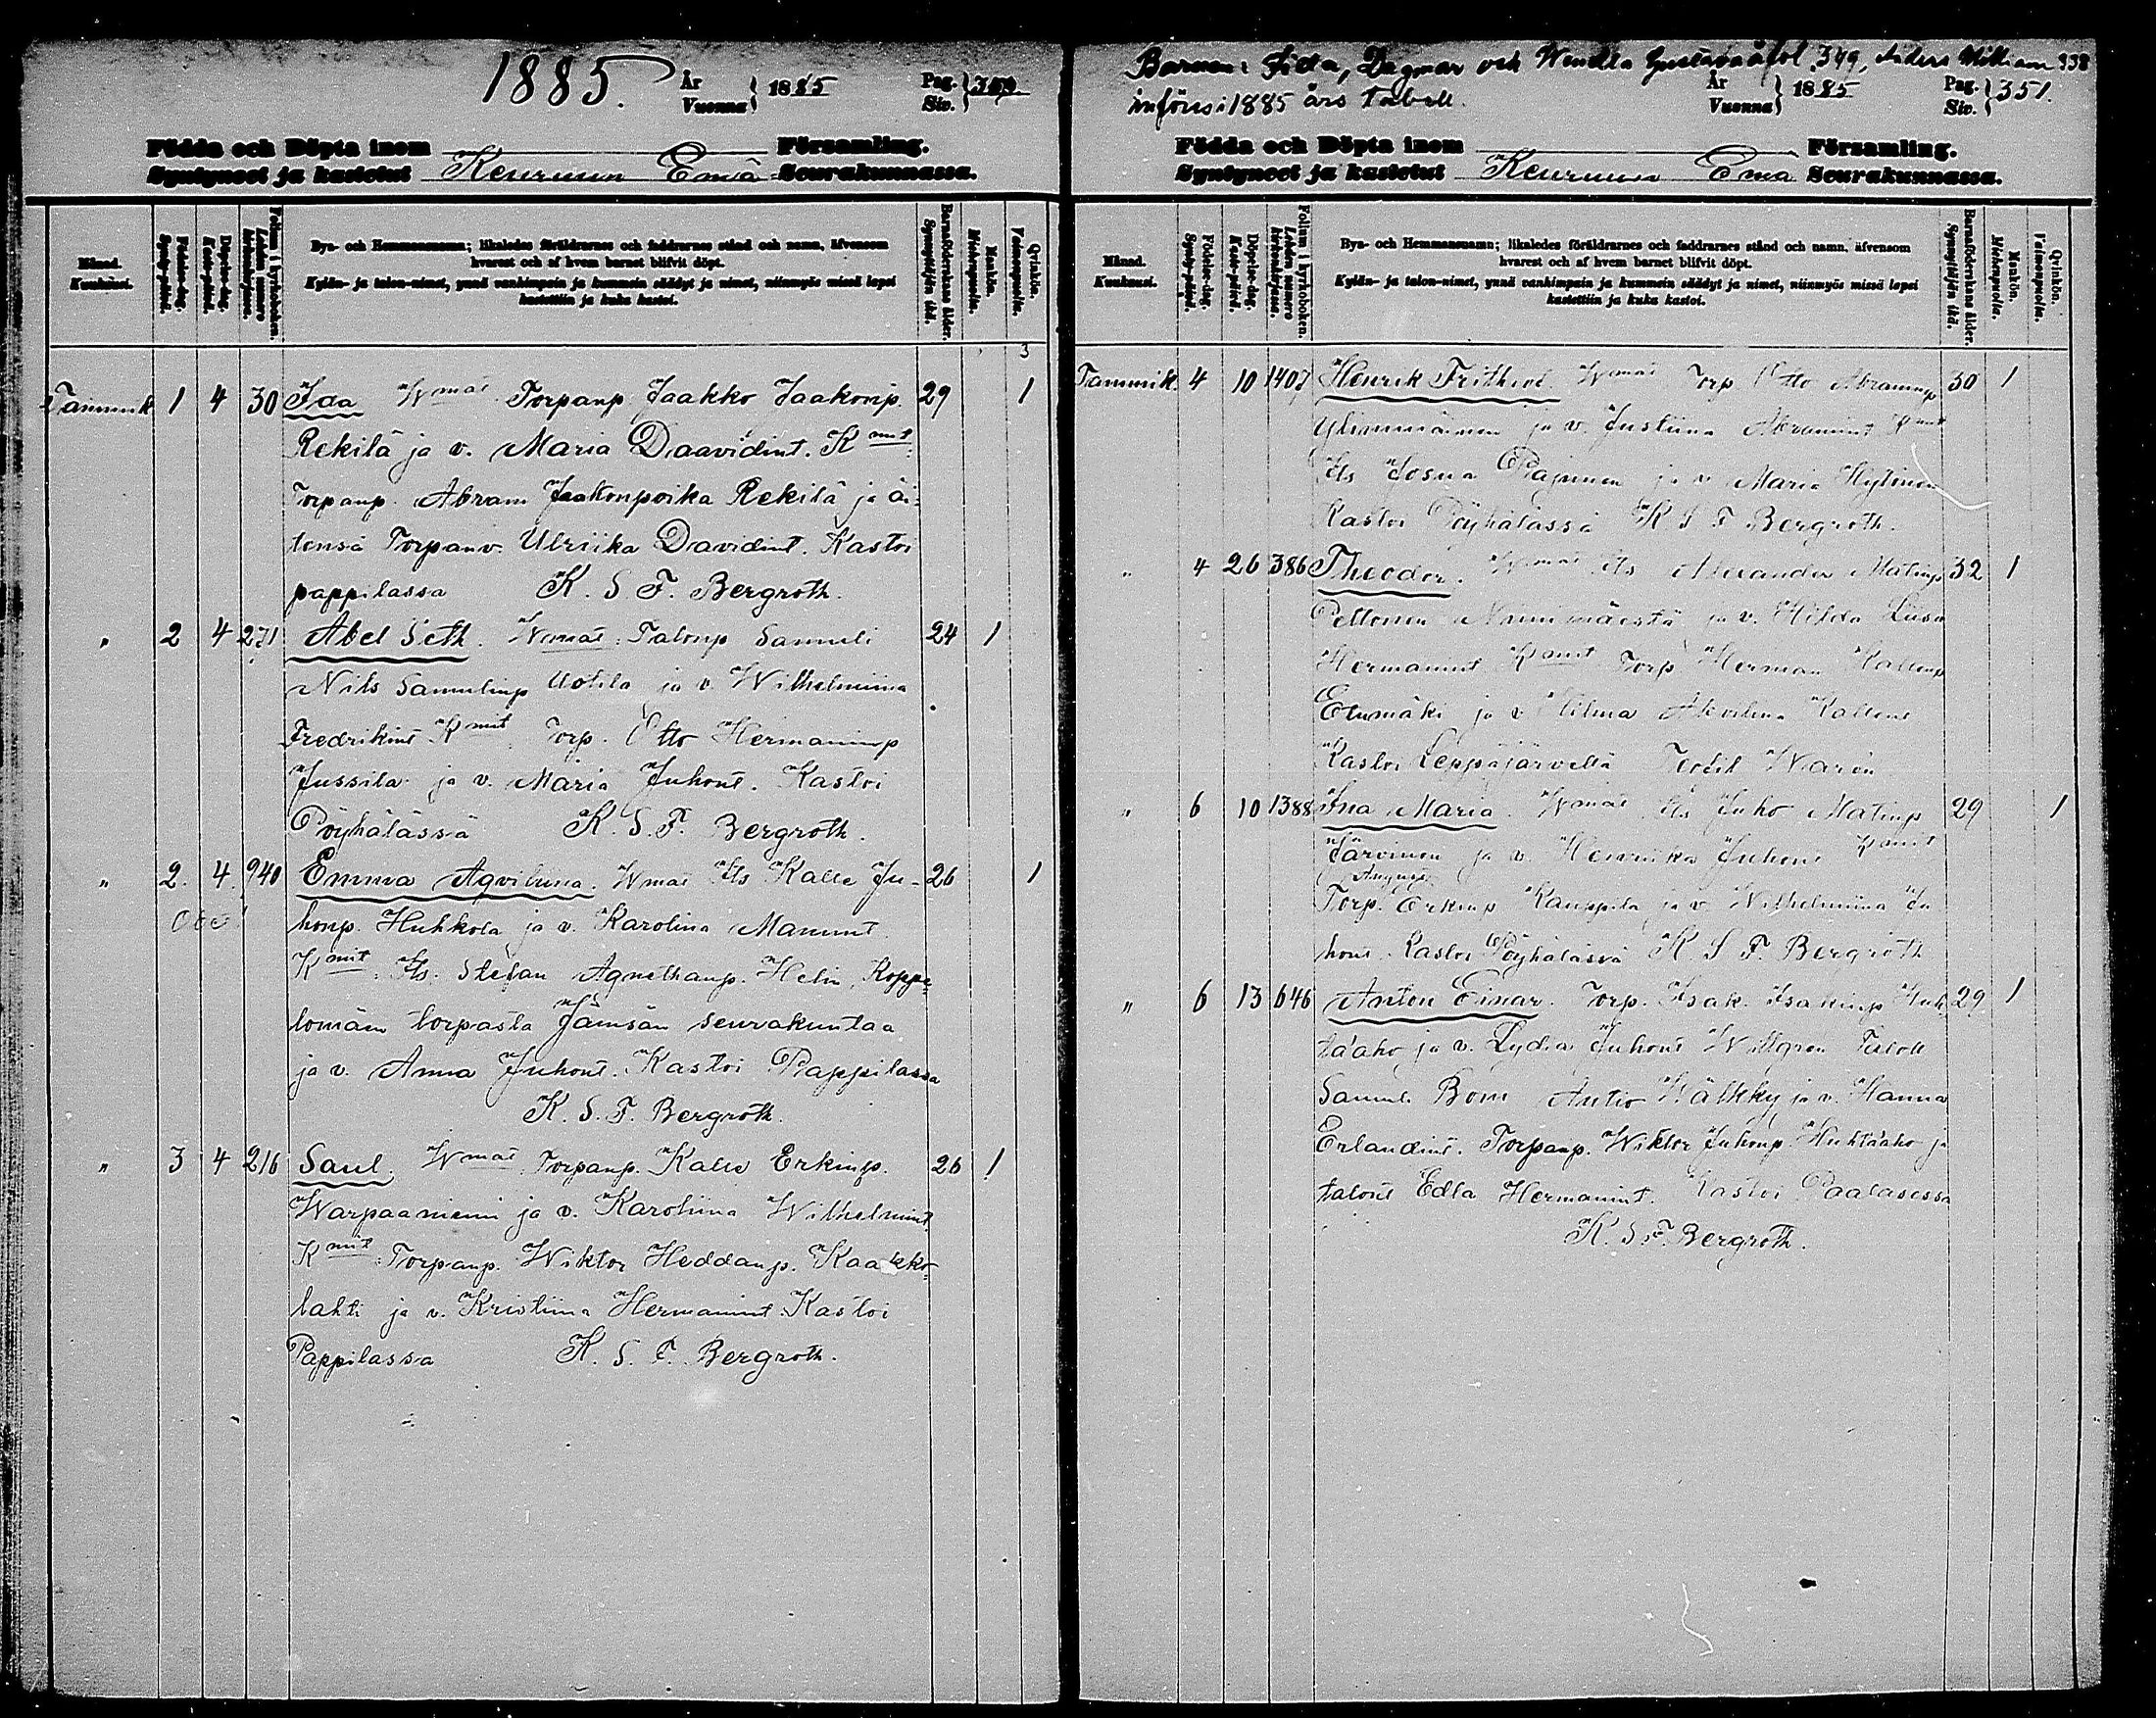 1885.
År
Vuonna } 1885
Pag.
Siv. }
Födda och Döpta inom Församling.
Syntyneet ja kastetut Keuruun Emä Seurakunnassa.
Månad.
Kuukausi.
Födelse-dag.
Synty-päivä.
Döpelse-dag.
Kaste-päivä.
Folium i kyrkoboken.
Lehden numero kirkonkirjassa.
Bya- och Hemmansnamn; likaledes föräldrarnes och faddrarnes stånd och namn, äfvensom
hvarest och af hvem barnet blifvit döpt.
Kylän- ja talon-nimet, ynnä vanhimpain ja kummein säädyt ja nimet, niinmyös missä lapsi
kastettiin ja kuka kastoi.
Barnaföderskans ålder.
Synnyttäjän ikä.
Mankön.
Miehenpuolia.
Qvinkön.
Vaimonpuolia.
3
Tammik 1 4 30 Ida Wmat Torpanp. Jaakko Jaakonp. 29 1
Rekilä ja v. Maria Daavidint. Kmit
Torpanp. Abram Jaakonpoika Rekilä ja äi-
tensä Torpanv. Ulriika Davidint. Kastoi
pappilassa K. S. F. Bergroth.
" 2 4 271 Abel Seth. Wmat: Talonp Samuli 24 1
Nils Samulinp Uotila ja v. Wilhelmiina
Fredrikint Kmit Torp. Otto Hermaninp
Jussila ja v. Maria Juhont. Kastoi
Pöyhälässä K. S. F. Bergroth.
" 2. 4. 940 Emma Aqviliina. Wmat Its Kalle Ju- 26 1
honp. Huhkola ja v. Karolina Manunt
Kmit. Its. Stefan Agnethanp. Helin, Koppe-
lomäen torpasta Jämsän seurakuntaa
ja v. Anna Juhont. Kastoi Pappilassa
K. S. F. Bergroth.
" 3 4 216 Saul. Wmat Torpanp. Kalle Erkinp. 26 1
Warpaaniemi ja v. Karoliina Wilhelmint.
Kmit: Torpanp. Wiktor Heddanp. Kaakko-
lahti ja v. Kristiina Hermanint. Kastoi
Pappilassa K. S. F. Bergroth.
Barnen: Fida, Dagmar och Wendla Gustava å fol. 349, 338
införes i 1885 års tabell.
År
Vuonna } 1885
Pag.
Siv. } 351.
Födda och Döpta inom Församling.
Syntyneet ja kastetut Keuruun Emä Seurakunnassa.
Månad.
Kuukausi.
Födelse-dag.
Synty-päivä.
Döpelse-dag.
Kaste-päivä.
Folium i kyrkoboken.
Lehden numero kirkonkirjassa.
Bya- och Hemmansnamn; likaledes föräldrarnes och faddrarnes stånd och namn, äfvensom
hvarest och af hvem barnet blifvit döpt.
Kylän- ja talon-nimet, ynnä vanhimpain ja kummein säädyt ja nimet, niinmyös missä lapsi
kastettiin ja kuka kastoi.
Barnaföderskans ålder.
Synnyttäjän ikä.
Mankön.
Miehenpuolia.
Qvinkön.
Vaimonpuolia.
Tammik 4 10 1407 Henrik Frithiof. Wmat Torp Otto Abraminp 30 1
Ylinimäinen ja v. Justiina Abramint Kmit
Its Josua Pajunen ja v. Maria Hytinen
Kastoi Pöyhälässä K S F Bergroth.
" 4 26 386 Theodor. Wmat Its Alexander Matinp 32 1
Pellonen Niinimäestä ja v. Hilda Liisa
Hermanint Kmit Torp Herman Kallenp
Etumäki ja v Kallent
Kastoi Leppäjärvellä Warén
" 6 10 1388 Ina Maria. Wmat Its Juho Matinp 29 1
Järvinen ja v. Henriika Juhont Kmit
August
Torp. Erkinp Kauppila ja v. Wilhelmiina Ju
hont. Kastoi Pöyhälässä K S F. Bergroth
" 6 13 646 Anton Einar. Torp. Isak Isakinp Huh 29 1
ta'aho ja v. Lydia Juhont
Samul. Bom Antio Kälkky ja v. Hanna
Erlandint. Torpanp. Wiktor Juhonp. Huhta'aho ja
talont Edla Hermanint. Kastoi Paalasessa
K. S F. Bergroth.